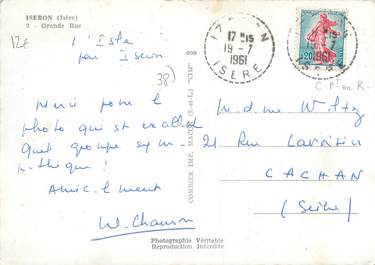 ISERON (Isère)
2 - Grande Rue
12€
l'Isle
par Iseron
38)
merci pour la
photo qui est excellente
Quel groupe sym-
pathique !
Amicalement
W. Chanson
COMBIER IMP. MACON (S.-et-L.) "CIM"
IZERON
17H15
19-7
1961
ISERE
0,20
C.P. en R.
21 Rue Lavoisier
CACHAN
(Seine)
Photographie Véritable
Reproduction Interdite